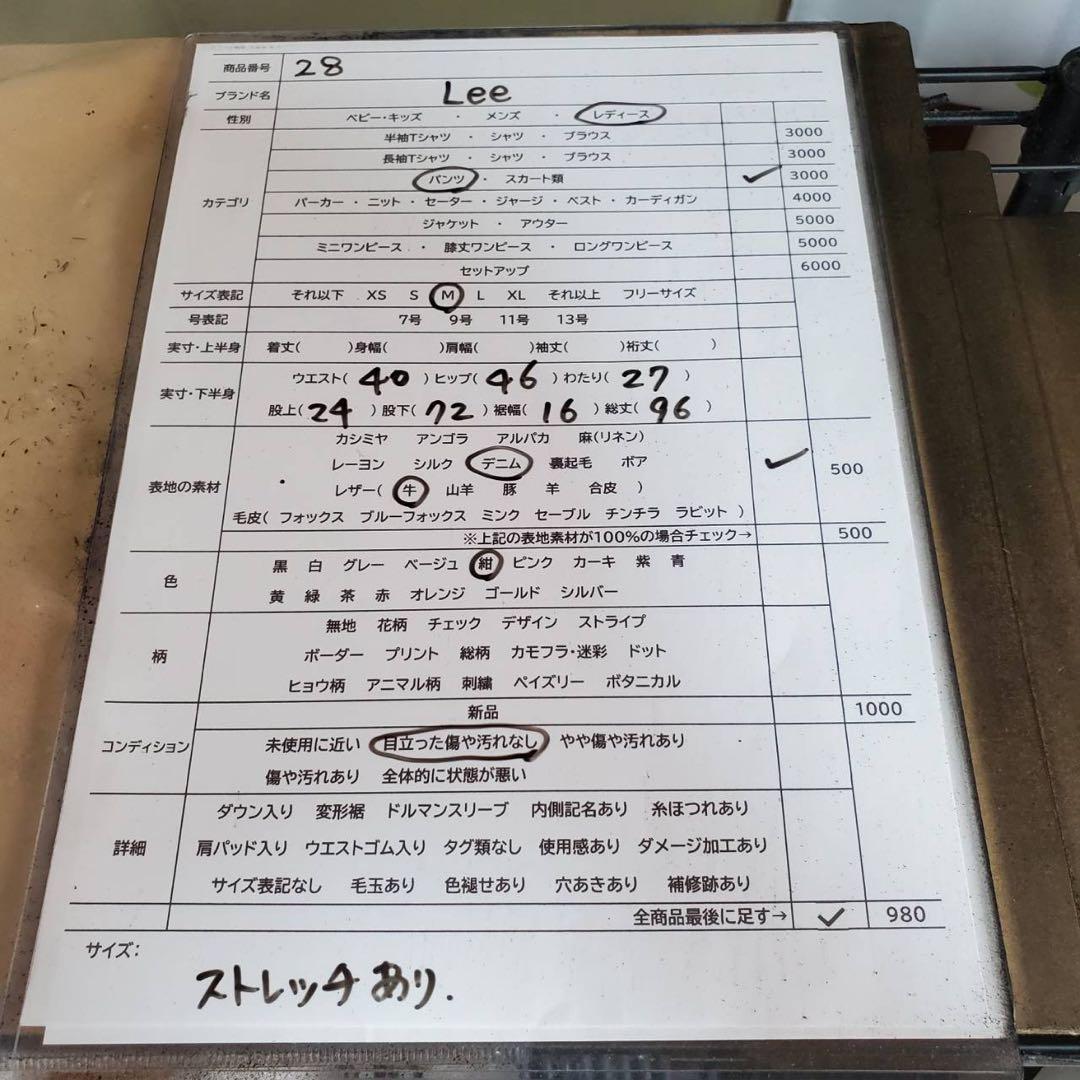 商品番号 28
ブランド名 Lee
性別 ベビー・キッズ ・ メンズ ・ レディース
半袖Tシャツ ・ シャツ ・ ブラウス 3000
長袖Tシャツ ・ シャツ ・ ブラウス 3000
パンツ ・ スカート類 ✓ 3000
カテゴリ パーカー ・ ニット ・ セーター ・ ジャージ ・ ベスト ・ カーディガン 4000
ジャケット ・ アウター 5000
ミニワンピース ・ 膝丈ワンピース ・ ロングワンピース 5000
セットアップ 6000
サイズ表記 それ以下 XS S M L XL それ以上 フリーサイズ
号表記 7号 9号 11号 13号
実寸・上半身 着丈( )身幅( )肩幅( )袖丈( )裄丈( )
実寸・下半身 ウエスト( 40 )ヒップ( 46 )わたり( 27 )
股上( 24 )股下( 72 )裾幅( 16 )総丈( 96 )
カシミヤ アンゴラ アルパカ 麻(リネン)
レーヨン シルク デニム 裏起毛 ボア ✓ 500
表地の素材 レザー( 牛 山羊 豚 羊 合皮 )
毛皮( フォックス ブルーフォックス ミンク セーブル チンチラ ラビット )
※上記の表地素材が100%の場合チェック→ 500
色 黒 白 グレー ベージュ 紺 ピンク カーキ 紫 青
黄 緑 茶 赤 オレンジ ゴールド シルバー
無地 花柄 チェック デザイン ストライプ
柄 ボーダー プリント 総柄 カモフラ・迷彩 ドット
ヒョウ柄 アニマル柄 刺繍 ペイズリー ボタニカル
新品 1000
コンディション 未使用に近い 目立った傷や汚れなし やや傷や汚れあり
傷や汚れあり 全体的に状態が悪い
ダウン入り 変形裾 ドルマンスリーブ 内側記名あり 糸ほつれあり
詳細 肩パッド入り ウエストゴム入り タグ類なし 使用感あり ダメージ加工あり
サイズ表記なし 毛玉あり 色褪せあり 穴あきあり 補修跡あり
全商品最後に足す→ ✓ 980
サイズ:
ストレッチあり.